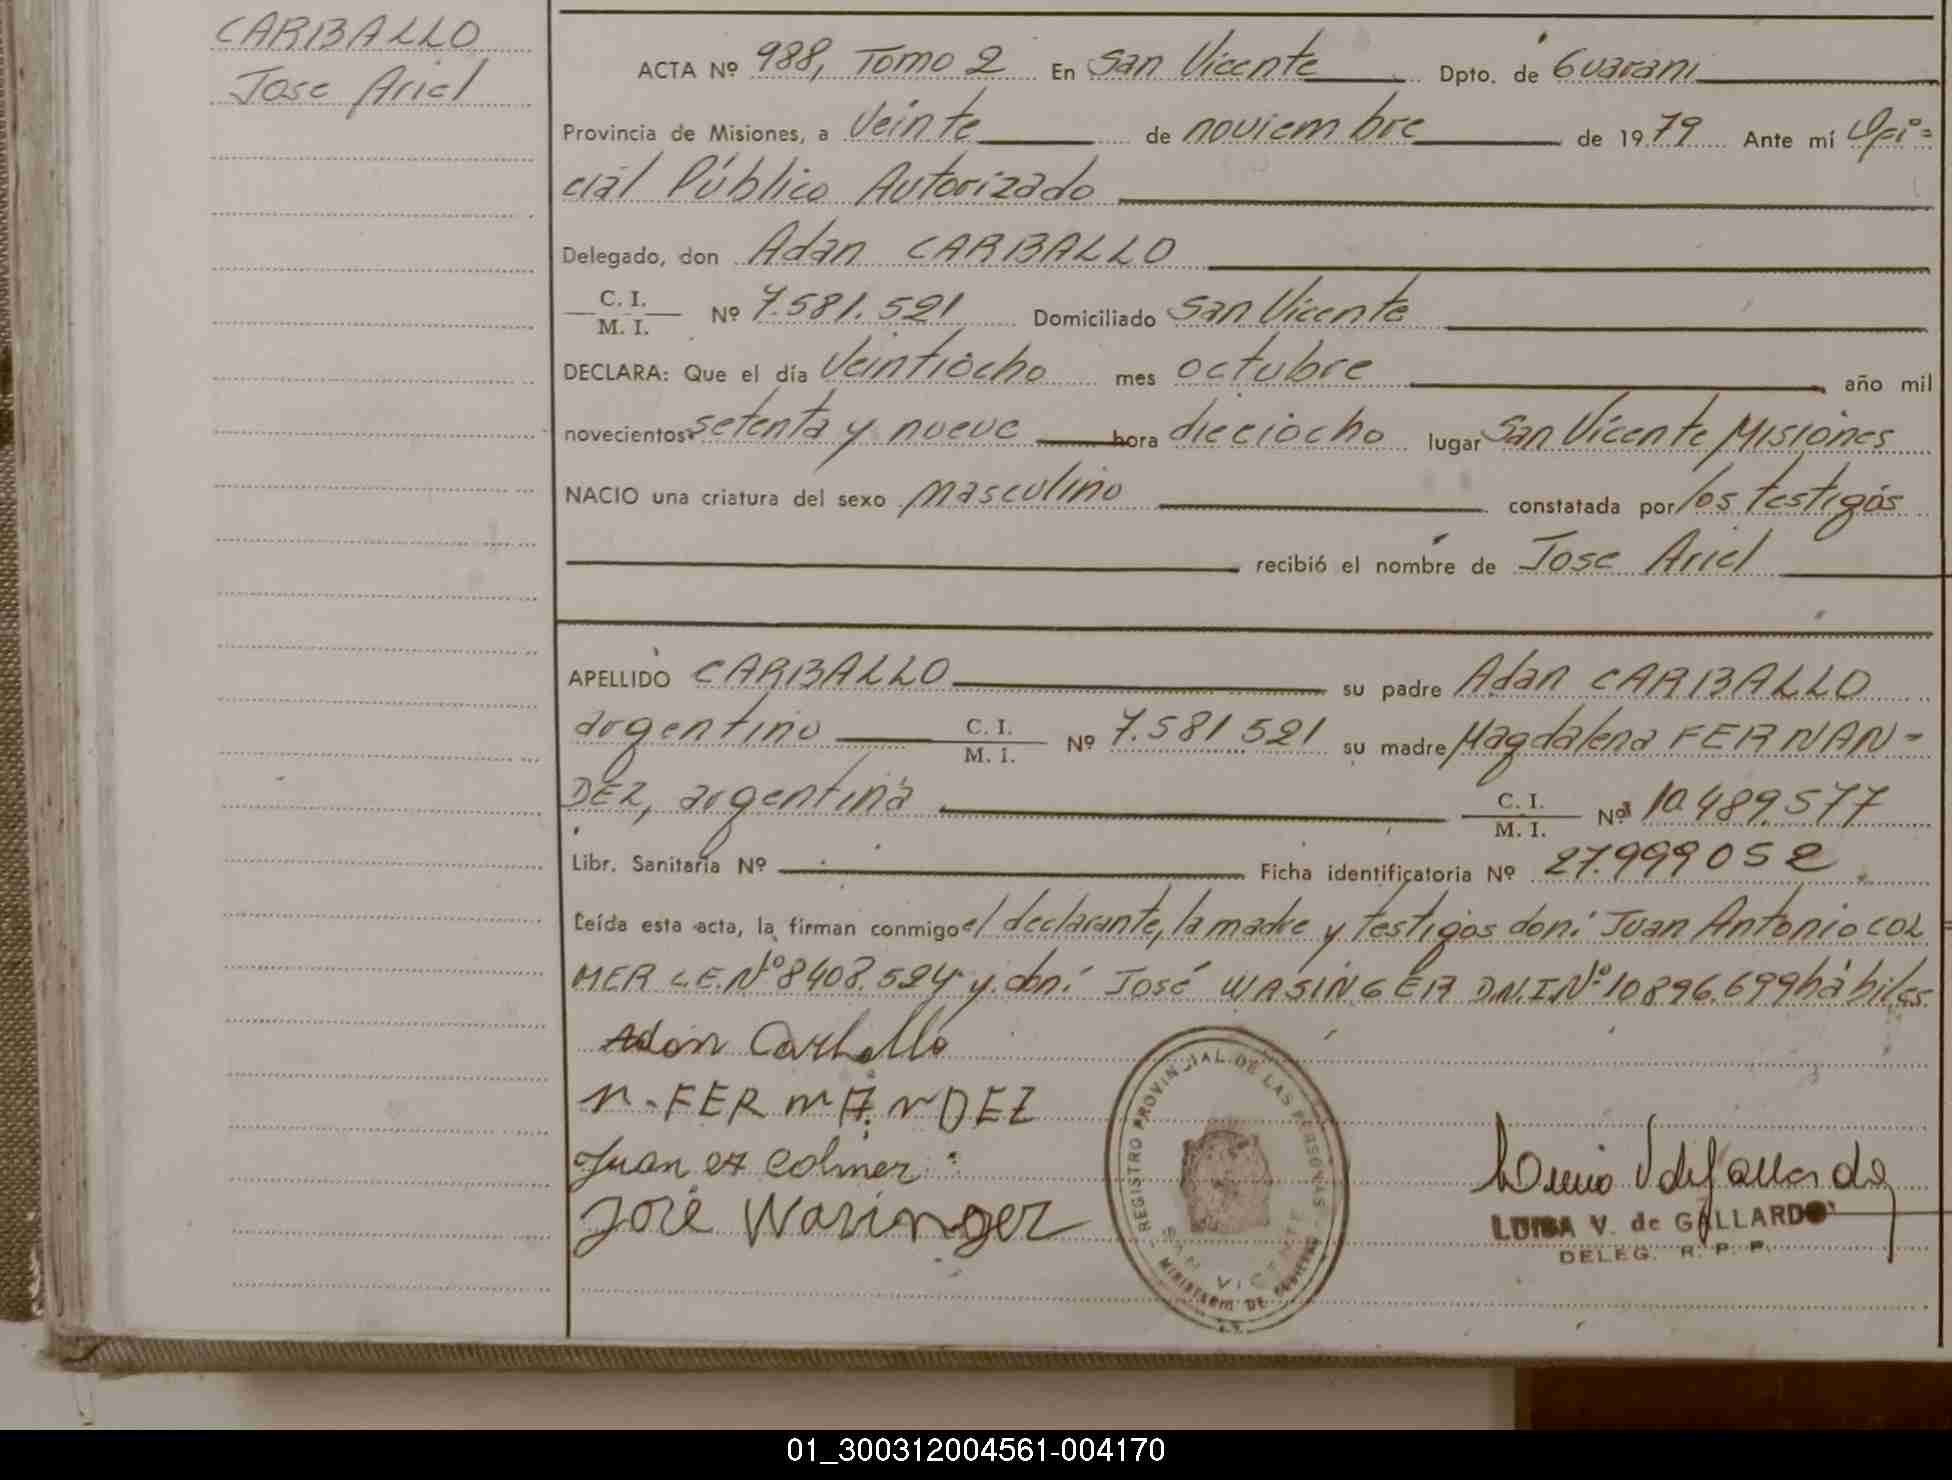 CARBALLO
Jose Ariel
ACTA Nº 988, Tomo 2 En San Vicente Dpto. de Guarani
Provincia de Misiones, a Veinte de noviembre de 1979 Ante mí Ofi=
cial Público Autorizado
Delegado, don Adan CARBALLO
C. I.
M. I. Nº 7.581.521 Domiciliado San Vicente
DECLARA: Que el día Veintiocho mes octubre año mil
novecientos setenta y nueve hora dieciocho lugar San Vicente Misiones
NACIO una criatura del sexo masculino constatada por los testigos
recibió el nombre de Jose Ariel
APELLIDO CARBALLO su padre Adan CARBALLO
argentino C. I. M. I. Nº 7.581.521 su madre Magdalena FERNAN=
DEZ, argentina C. I. M. I. Nº 10.489.577
Libr. Sanitaria Nº Ficha identificatoria Nº 27.999052
Leída esta acta, la firman conmigo el declarante, la madre y testigos don: Juan Antonio COL
MER L.E.Nº 8408.524 y don: José WASINGER D.N.I Nº 10896.699 hábiles
Adan Carballo
M. FERNANDEZ
Juan Colmer
José Wasinger
REGISTRO PROVINCIAL DE LAS PERSONAS
SAN VICENTE
MINISTERIO DE GOBIERNO
LUISA V. de GALLARDO
DELEG. R. P. P.
01_300312004561-004170